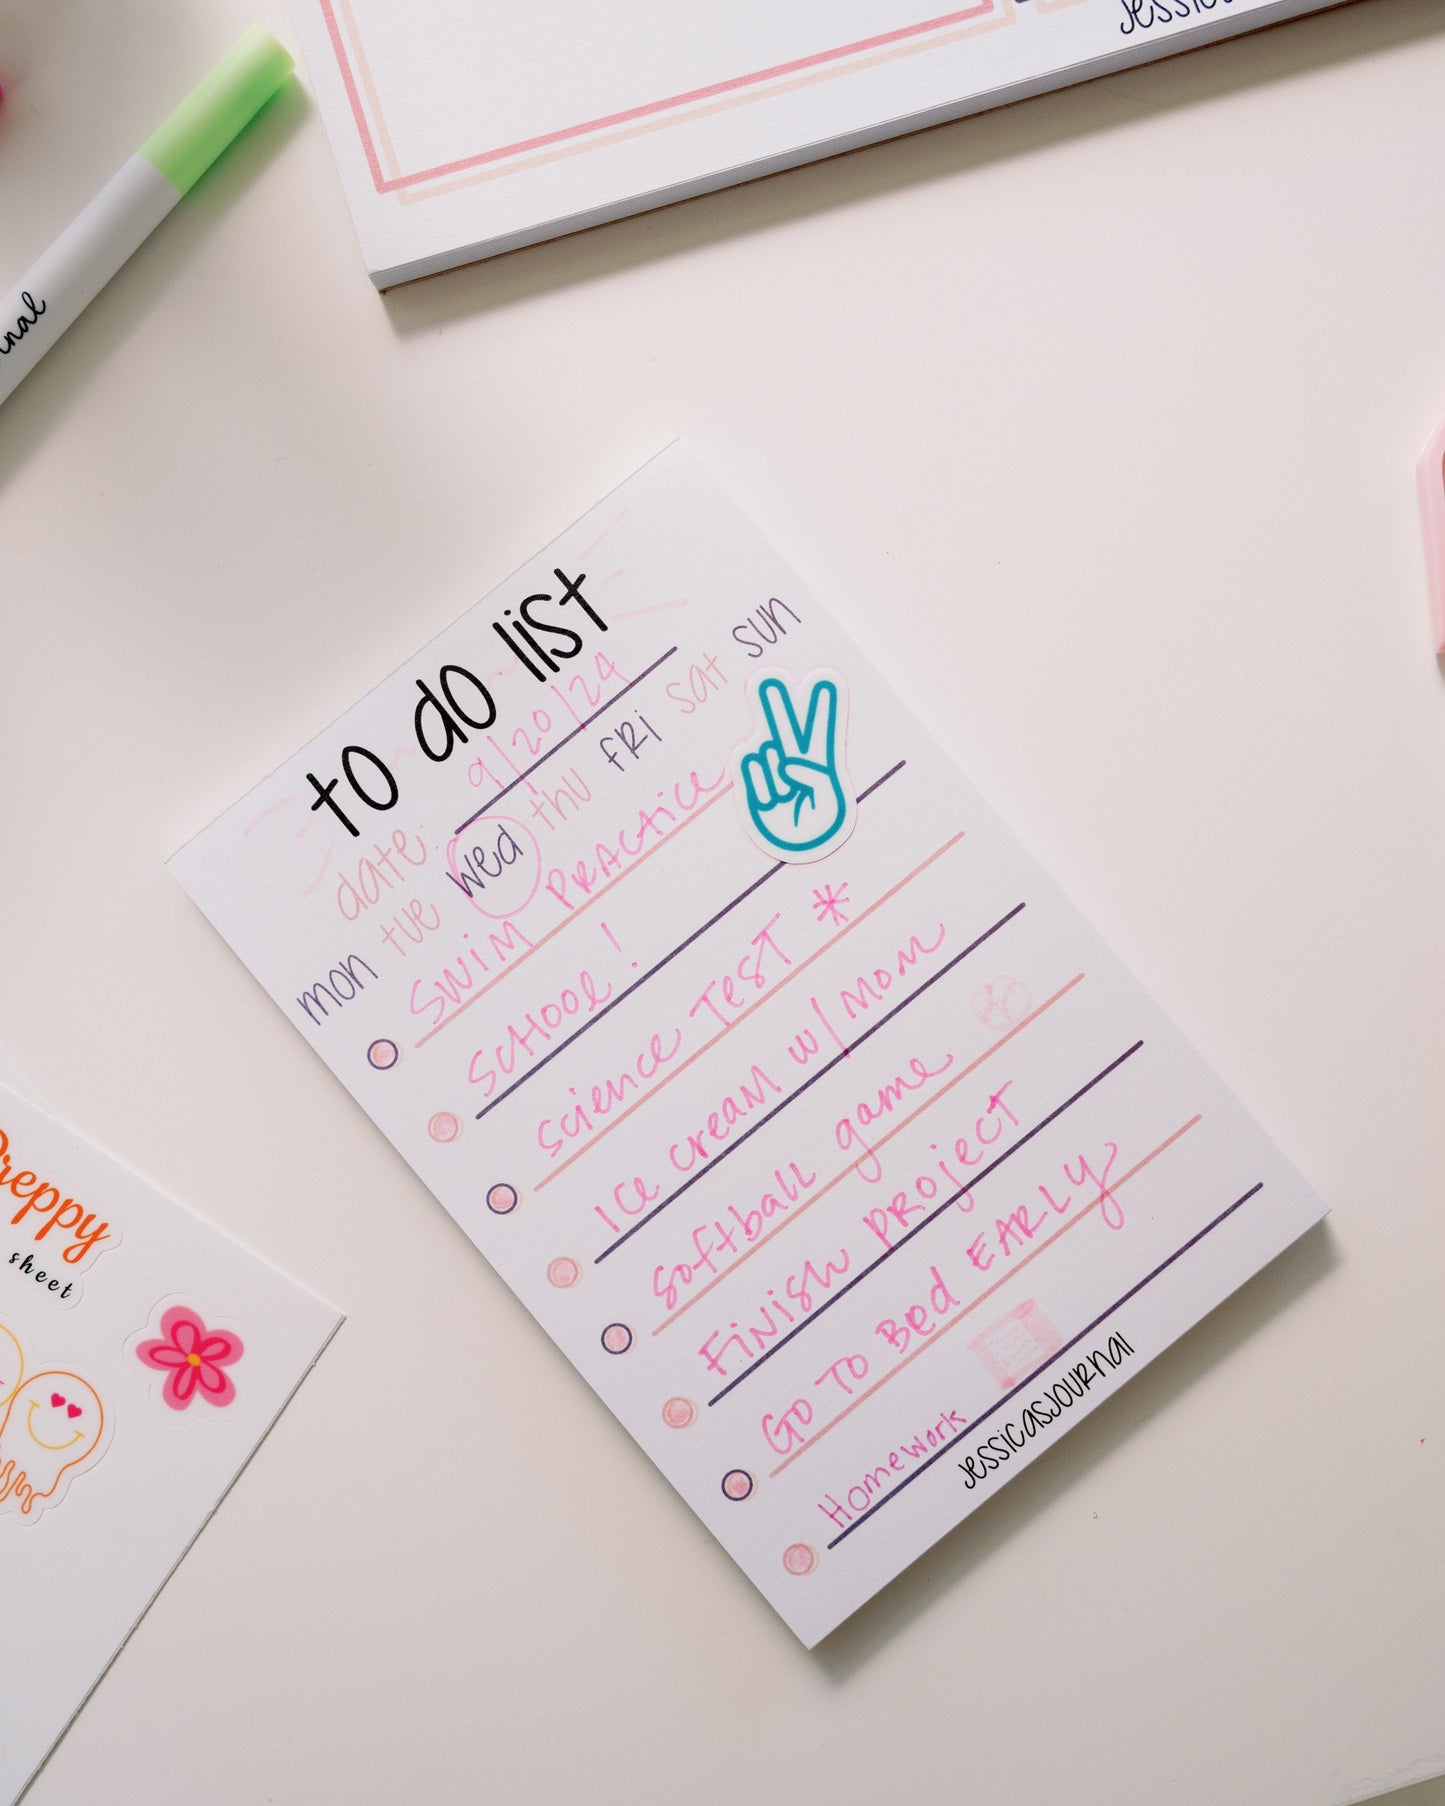 jessic
nal
to do list
date: 9/20/24
mon tue wed thu fri sat sun
Swim Practice
School!
Science Test *
Ice cream w/ Mom
Softball game
Finish Project
Go to Bed EARLY
Homework
jessicasjournal
Preppy
sheet